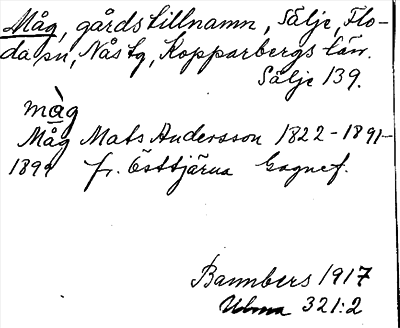 Måg, gårdstillnamn, Sälje, Flo-
da sn, Nås tg, Kopparbergs län.
Sälje 139.
måg
Måg Mats Andersson 1822-1891-
1899 fr. Östtjärna Gagnef.
Bannbers 1917
Ulma 321:2